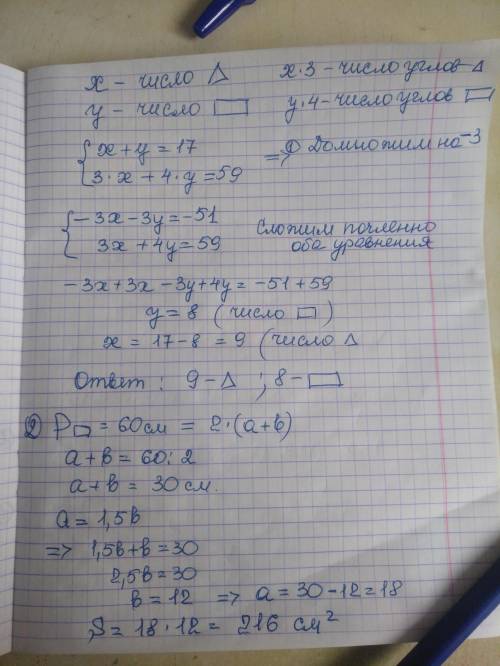 x – число △
x·3 – число углов △
y – число ▭
y·4 – число углов ▭
x + y = 17
3·x + 4·y = 59
=> ① Домножим на -3
-3x - 3y = -51
3x + 4y = 59
Сложим почленно
оба уравнения
-3x + 3x - 3y + 4y = -51 + 59
y = 8 (число ▭)
x = 17 - 8 = 9 (число △
Ответ: 9 - △; 8 - ▭
② P▭ = 60 см = 2·(a+b)
a + b = 60 : 2
a + b = 30 см.
a = 1,5b
=> 1,5b + b = 30
2,5b = 30
b = 12 => a = 30 - 12 = 18
S = 18·12 = 216 см²